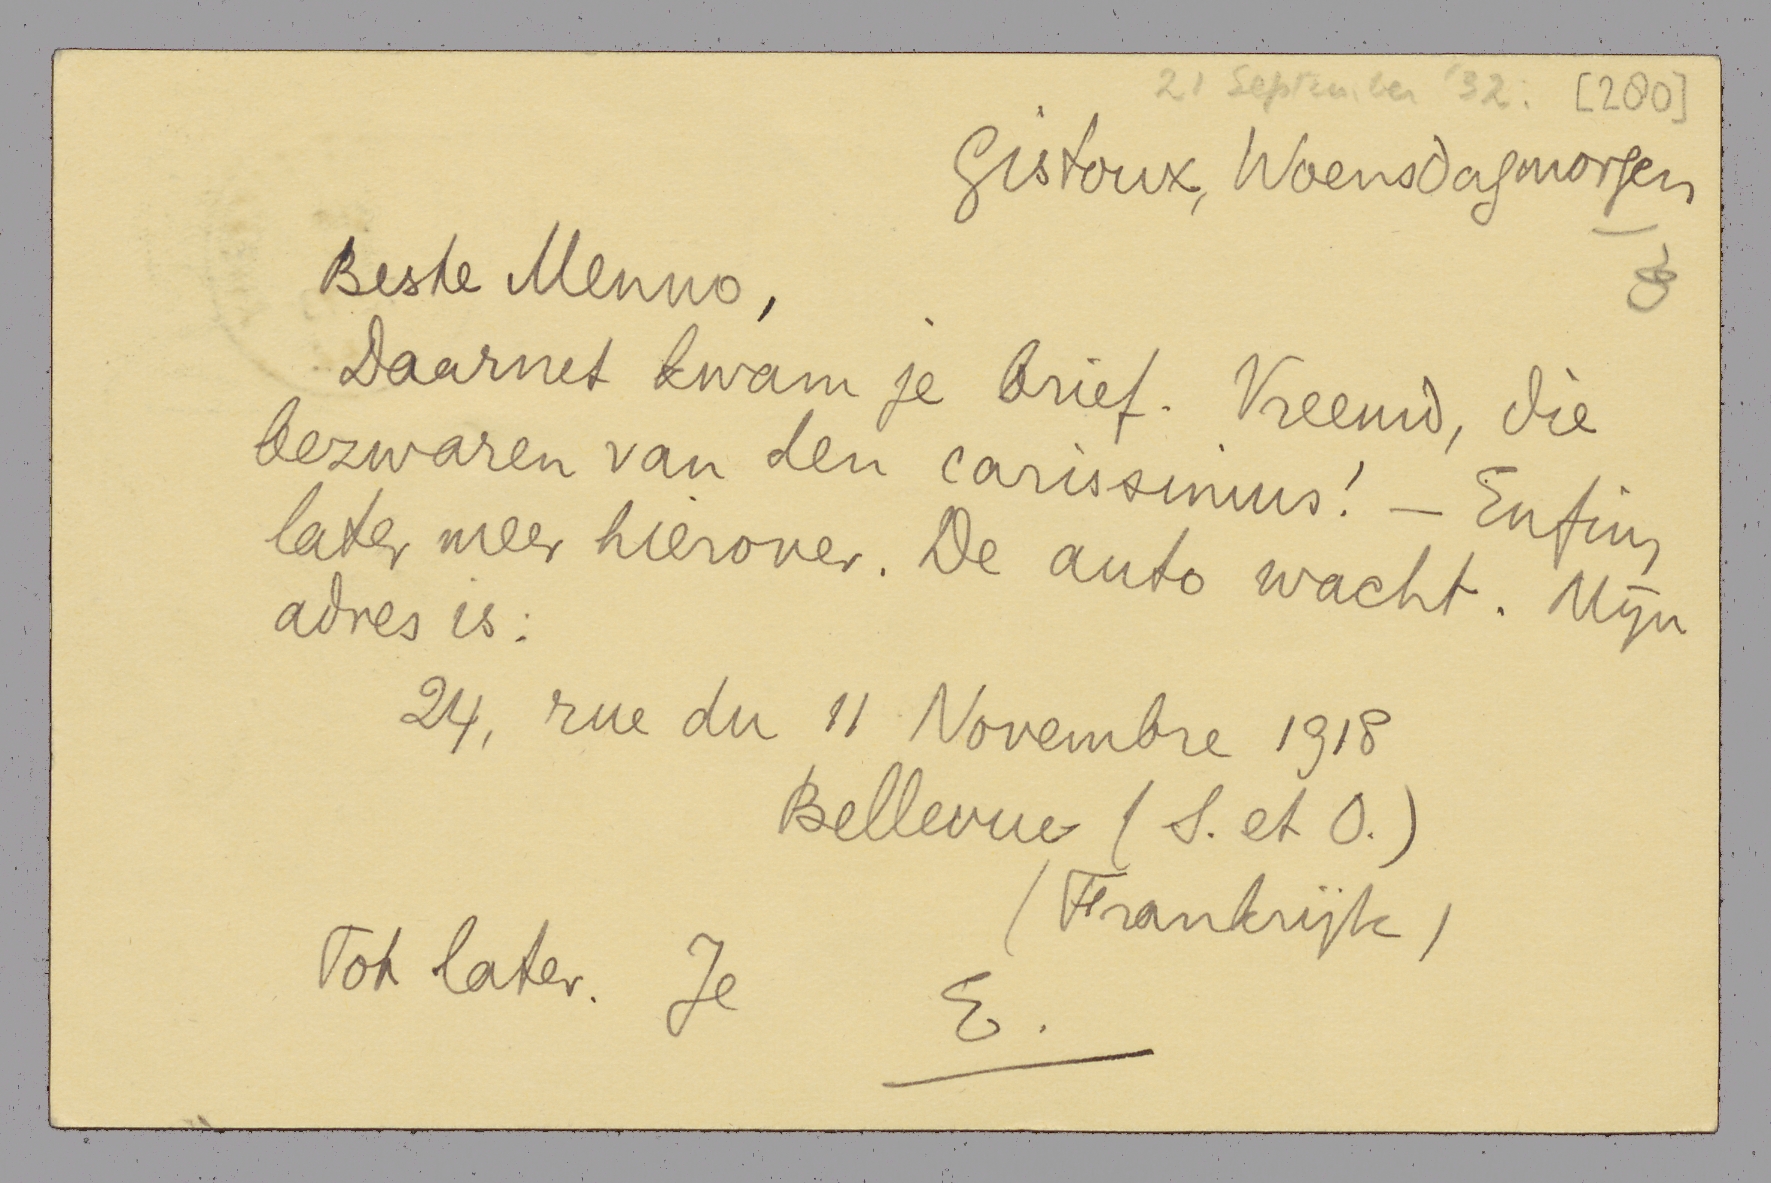 21 September '32. [280]
Gistoux, Woensdagmorgen
Beste Menno,
Daarnet kwam je brief. Vreemd, die
bezwaren van den carissimus! — Enfin,
later meer hierover. De auto wacht. Mijn
adres is:
24, rue du 11 Novembre 1918
Bellevue (S. et O.)
(Frankrijk)
Tot later. Je E.